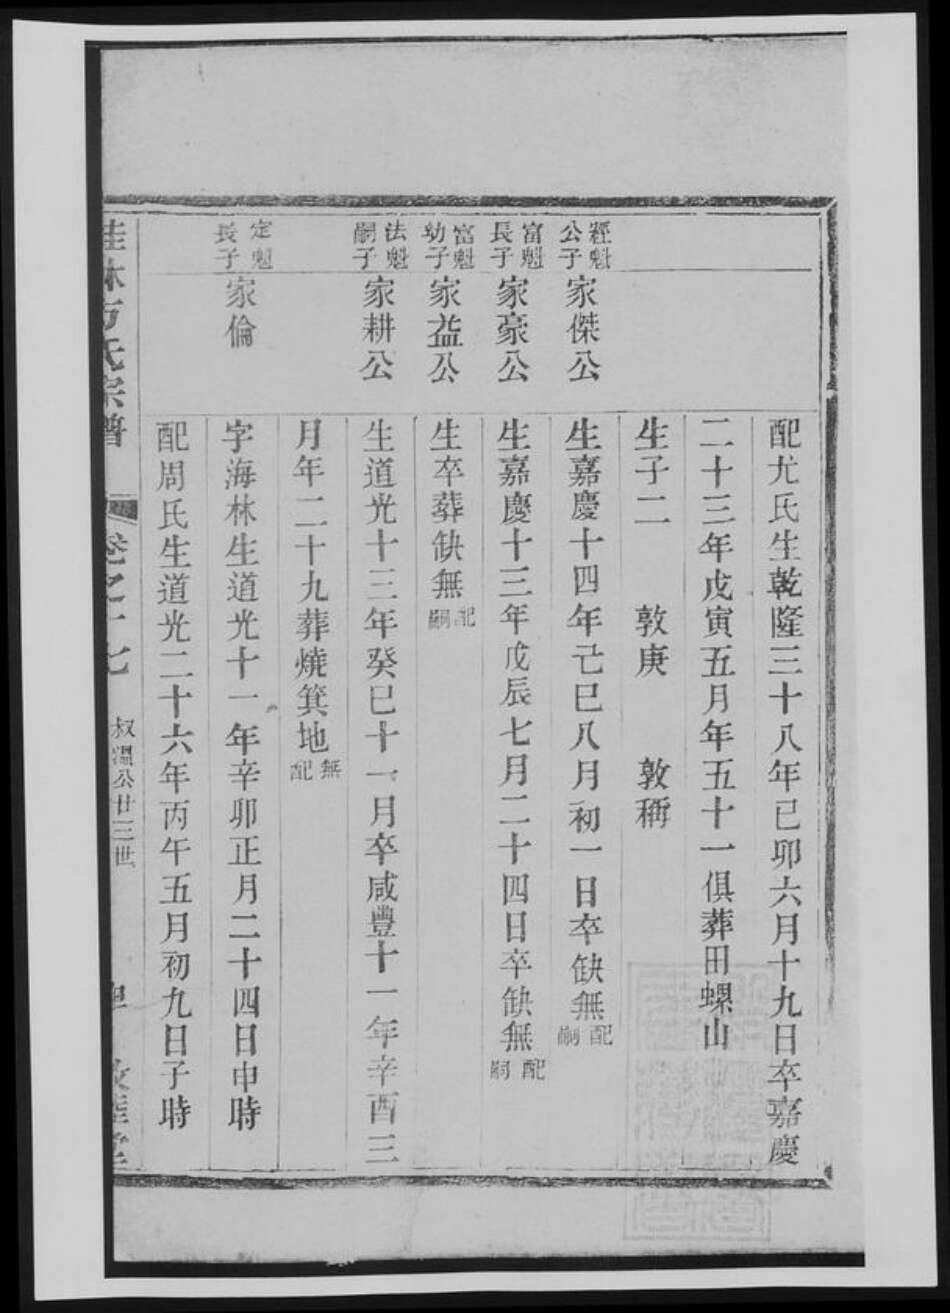 配尤氏生乾隆三十八年己卯六月十九日卒嘉慶
二十三年戊寅五月年五十一俱葬田螺山
生子二　敦庚　敦稱
經魁公子
家傑公
生嘉慶十四年己巳八月初一日卒缺無配嗣
富魁長子
家豪公
生嘉慶十三年戊辰七月二十四日卒缺無配嗣
富魁幼子
家益公
生卒葬缺無配嗣
法魁嗣子
家耕公
生道光十三年癸巳十一月卒咸豐十一年辛酉三
月年二十九葬燒箕地無配
定魁長子
家倫
字海林生道光十一年辛卯正月二十四日申時
配周氏生道光二十六年丙午五月初九日子時
桂林方氏宗譜
卷之十七
叔淵公廿三世
敦桂堂